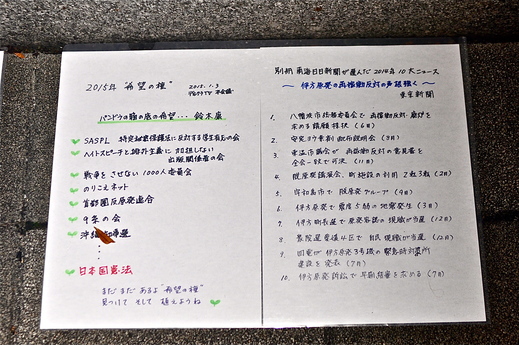 2015年 "希望の種"
2015.1.3
パンドラの箱の底の希望... 鈴木
SASPL 特定秘密保護法に反対する学生有志の会
ヘイトスピーチと排外主義に加担しない
出版関係者の会
戦争をさせない1000人委員会
のりこえネット
首都圏反原発連合
9条の会
沖縄
日本国憲法
まだまだあるよ "希望の種"
見つけて そして 植えようね
別冊 南海日日新聞が選んだ2014年10大ニュース
〜 伊方原発の再稼働反対の声根強く 〜
東京新聞
1. 八幡浜市総務委員会で 再稼働反対・廃炉を
求める請願採状 (6月)
2. 安定ヨウ素剤 配布説明会 (3月)
3. 東温市議会が 再稼働反対の意見書を
全会一致で可決 (11月)
4. 脱原発講演会、町施設の利用 2転3転 (2月)
5. 宇和島市で 脱原発グループ (9月)
6. 伊方原発で 震度5弱の地震発生 (3月)
7. 伊方町長選で 原発容認の 現職が当選 (12月)
8. 衆院選愛媛4区で 自民 現職が当選 (12月)
9. 四電が 伊方原発3号機の緊急時対策所
建設を 発表 (7月)
10. 伊方原発訴訟で 早期結審を求める (7月)